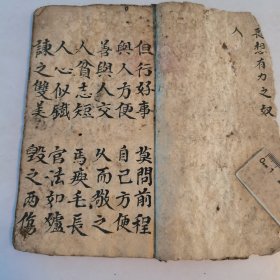 長想有力之奴
人
但行好事 莫問前程
與人方便 自己方便
善與人交 久而敬之
人貧志短 馬瘦毛長
人心似鐵 官法如爐
諫之雙美 毀之兩傷